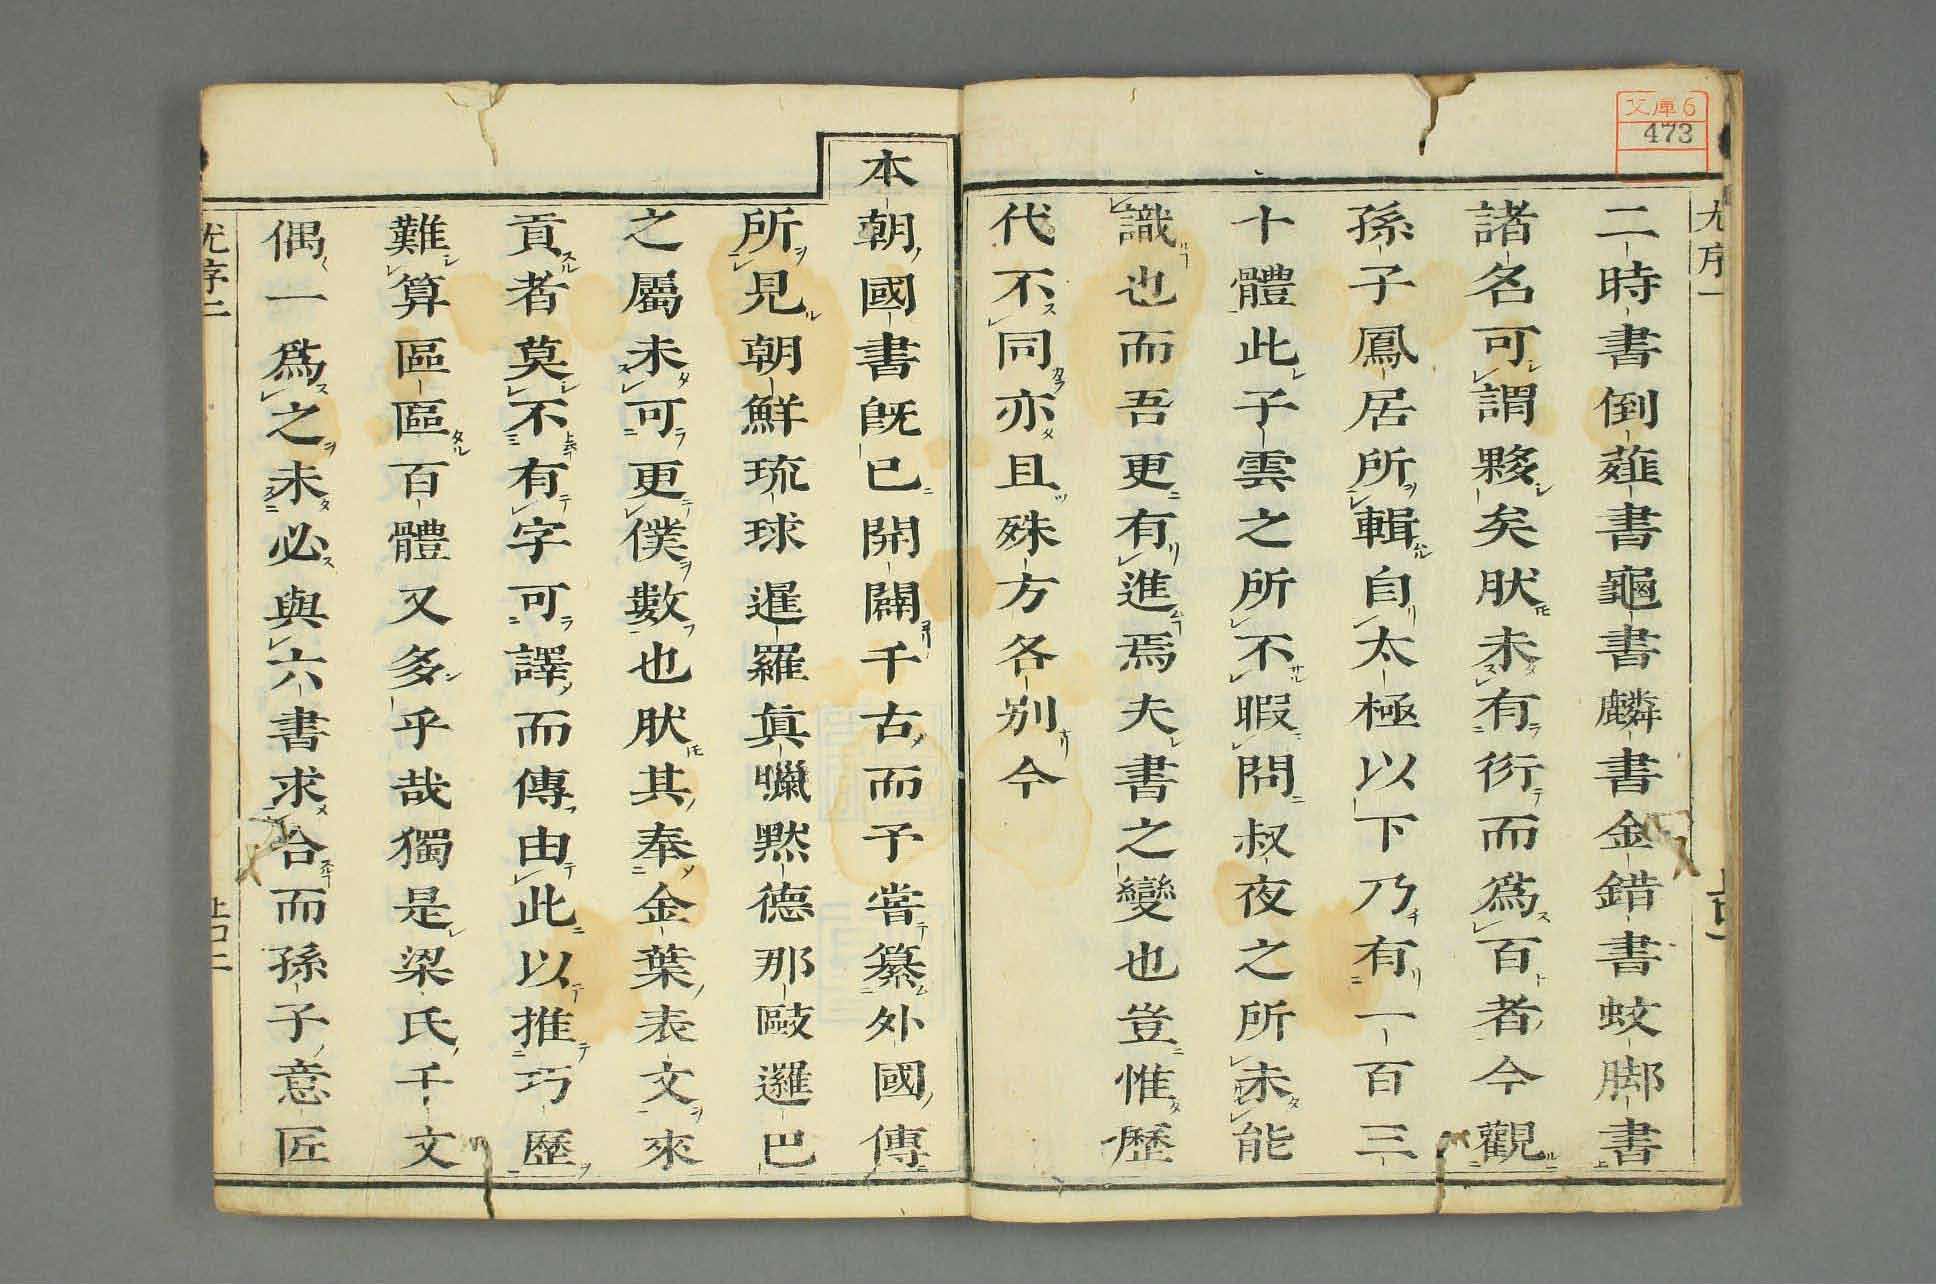 文庫6
473
尤序一
二時書倒薤書龜書麟書金錯書蚊脚書
諸名可謂夥矣肰未有衍而爲百者今觀
孫子鳳居所輯自太極以下乃有一百三
十體此子雲之所不暇問叔夜之所未能
識也而吾更有進焉夫書之變也豈惟歷
代不同亦且殊方各別今
本朝國書旣已開闢千古而予嘗纂外國傳
所見朝鮮琉球暹羅眞臘黙德那歐邏巴
之屬未可更僕數也肰其奉金葉表文來
貢者莫不有字可譯而傳由此以推巧歷
難算區區百體又多乎哉獨是梁氏千文
偶一爲之未必與六書求合而孫子意匠
尤序二
上口二